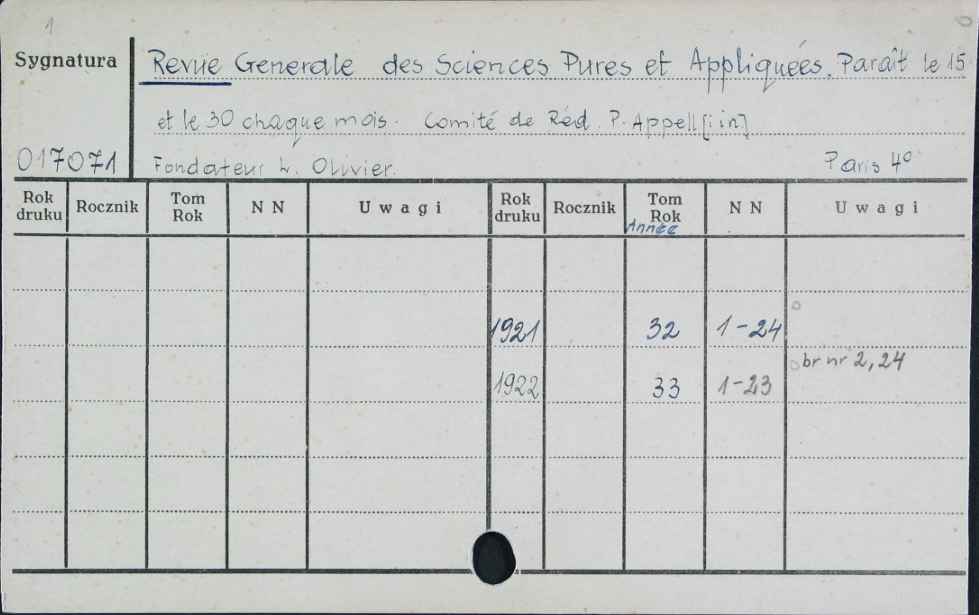 1
Sygnatura Revue Generale des Sciences Pures et Appliquées. Paraît le 15
et le 30 chaque mois. Comité de Réd. P. Appell [i in]
017071 Fondateur L. Olivier. Paris 4º
Rok druku Rocznik Tom Rok N N Uwagi Rok druku Rocznik Tom Rok Année N N Uwagi
1921 32 1-24
br nr 2, 24
1922 33 1-23